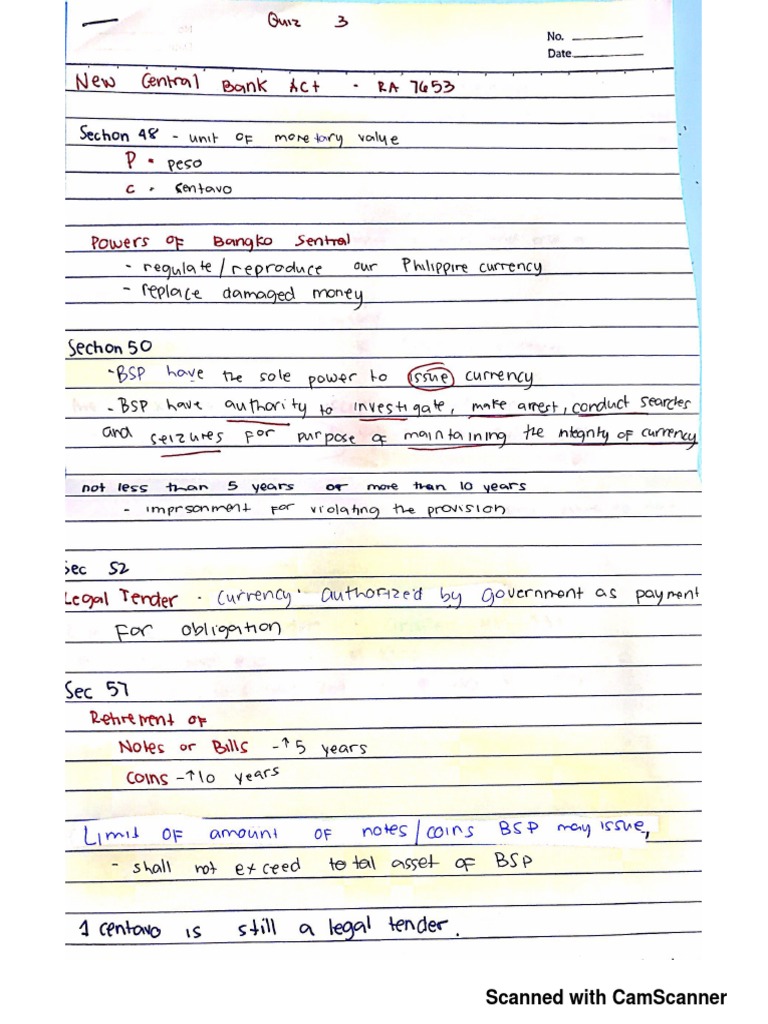 Quiz 3
No.
Date
New Central Bank Act - RA 7653
Section 48 - unit of monetary value
P - peso
c - sentavo
Powers of Bangko Sentral
- regulate/reproduce our Philippine currency
- replace damaged money
Section 50
- BSP have the sole power to issue currency
- BSP have authority to investigate, make arrest, conduct searches
and seizures for purpose of maintaining the integrity of currency
not less than 5 years or more than 10 years
- imprsonment for violating the provision
Sec 52
Legal Tender - currency authorized by government as payment
for obligation
Sec 57
Retirement of
Notes or Bills - ↑ 5 years
Coins - ↑ 10 years
Limit of amount of notes/coins BSP may issue,
- shall not exceed total asset of BSP
1 centavo is still a legal tender.
Scanned with CamScanner